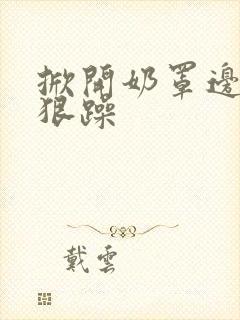 掀開奶罩邊
狠躁
戴雲